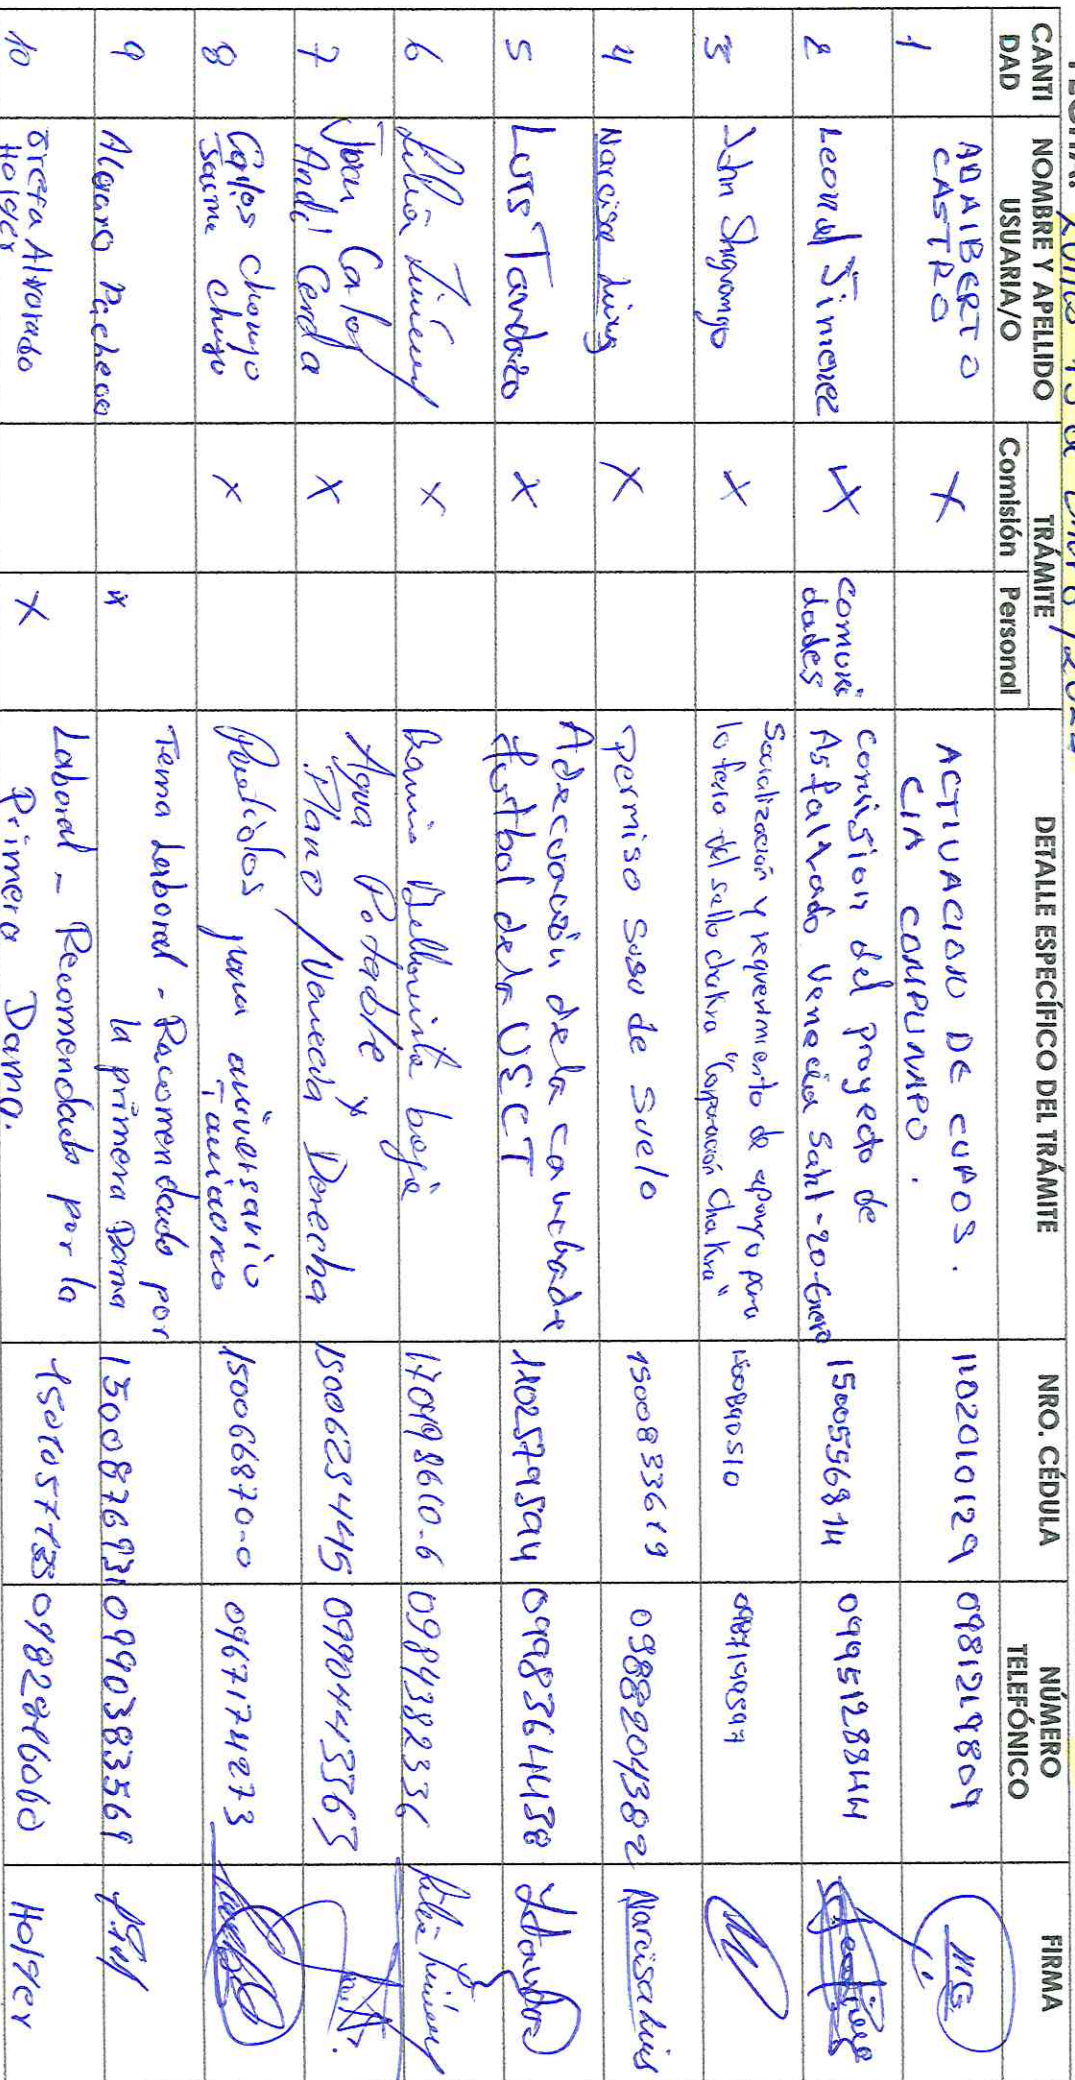 FECHA: Lunes 15 de Enero / 2022
CANTI DAD
NOMBRE Y APELLIDO USUARIA/O
TRÁMITE
Comisión
Personal
DETALLE ESPECÍFICO DEL TRÁMITE
NRO. CÉDULA
NÚMERO TELEFÓNICO
FIRMA
1
ADALBERTO
CASTRO
X
ACTIUACION DE CUPOS.
CIA COMPUNAPO.
1102010129
0981219809
2
Leonel Jimenez
X
comuni
dades
comision del proyecto de
Asfaltado Venecia Sahl-20-Enero
1500556814
0995128844
3
John Shiguango
X
Socialización y requerimiento de apoyo para
la feria del sello chakra "Corporación Chakra"
4
Narcisa
X
Permiso suso de Suelo
1500833619
0988204382
Narcisa
5
Luis Tandazo
X
Adecuación de la cancha de
futbol de la USCT
1102579504
0998364438
6
Lilia Jiménez
X
Barrio Bellavista baja
170498610-6
0984382336
7
Juan Carlos
Andi Cerda
X
Agua Potable X
Plano / Venecia Derecha
1500625445
0990443563
8
Carlos chongo
Jaime chugo
X
para aniversario
150066870-0
0967174273
9
Alvaro Pacheco
x
Tema Laboral - Recomendado por
la primera Dama
1500876931
0990383569
10
Greta Alvarado
Holger
X
Laboral - Recomendado por la
Primera Dama.
0982816060
Holger